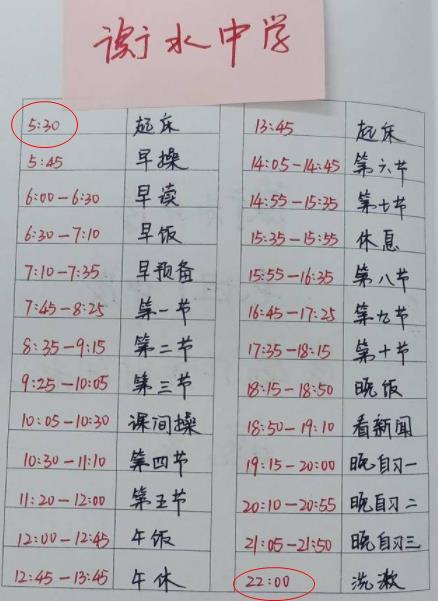 衡水中学
5:30 起床 13:45 起床
5:45 早操 14:05-14:45 第六节
6:00-6:30 早读 14:55-15:35 第七节
6:30-7:10 早饭 15:35-15:55 休息
7:10-7:35 早预备 15:55-16:35 第八节
7:45-8:25 第一节 16:45-17:25 第九节
8:35-9:15 第二节 17:35-18:15 第十节
9:25-10:05 第三节 18:15-18:50 晚饭
10:05-10:30 课间操 18:50-19:10 看新闻
10:30-11:10 第四节 19:15-20:00 晚自习一
11:20-12:00 第五节 20:10-20:55 晚自习二
12:00-12:45 午饭 21:05-21:50 晚自习三
12:45-13:45 午休 22:00 洗漱